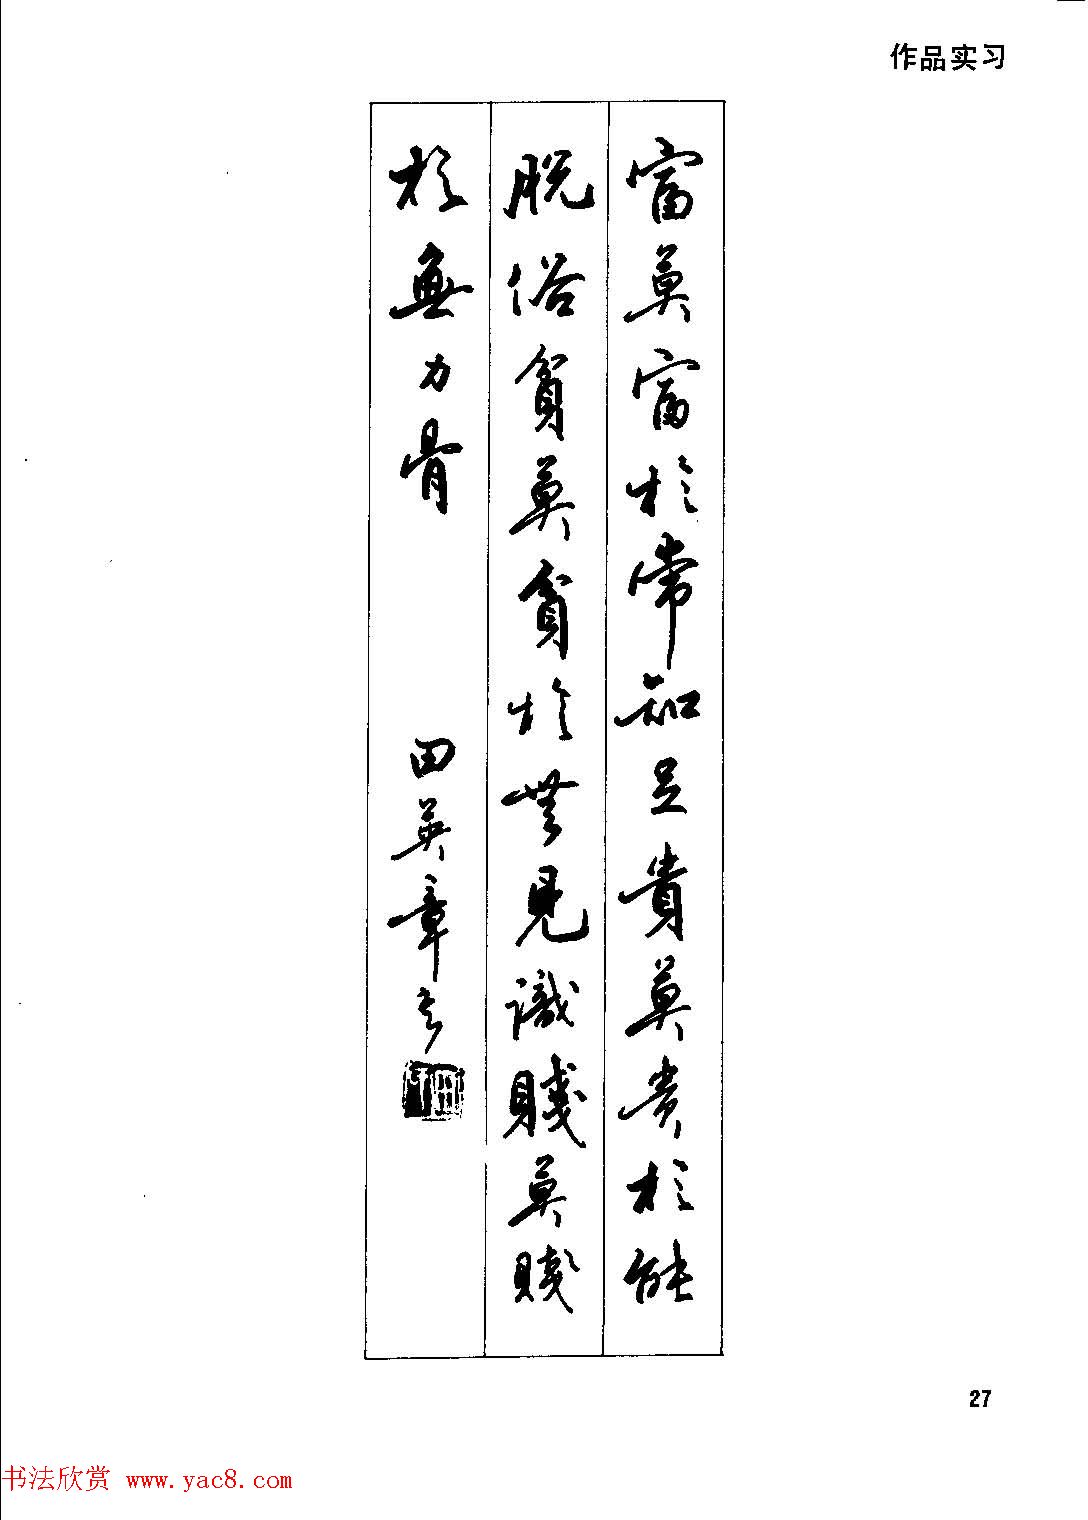 作品实习
富莫富於常知足貴莫贵於能
脱俗貧莫貧於無見識賤莫賤
於無力骨
田英章书
27
书法欣赏 www.yac8.com